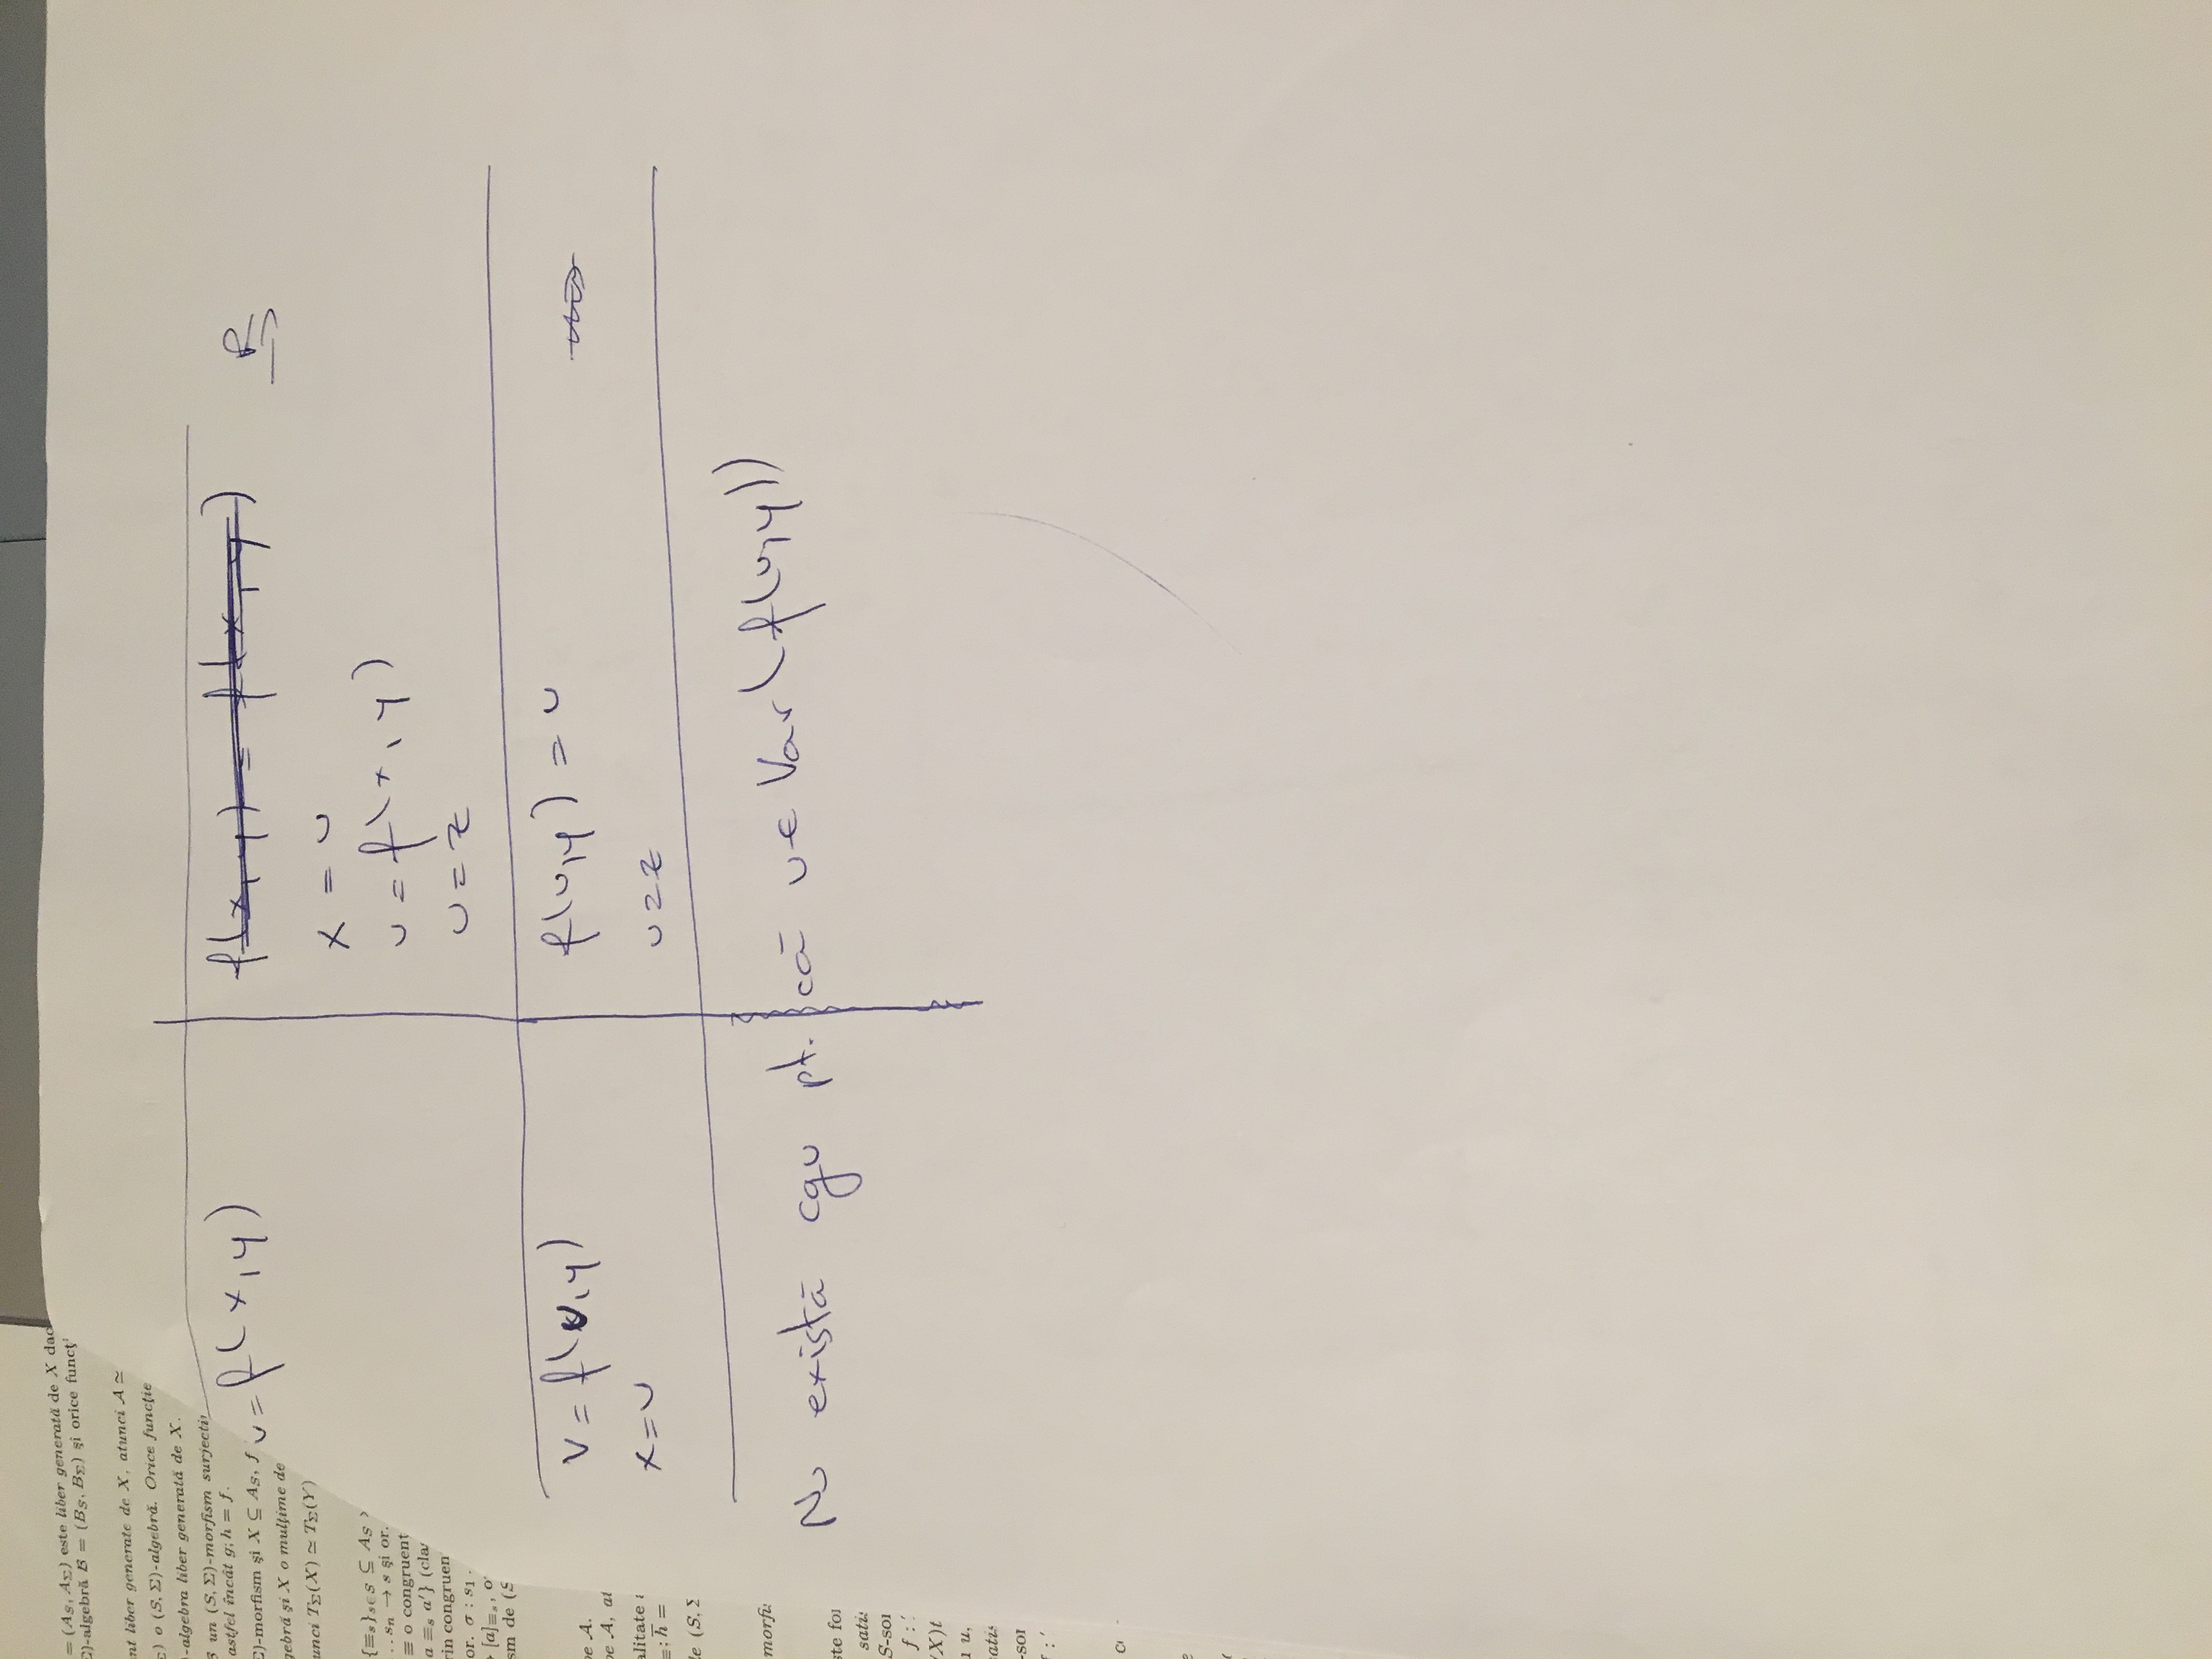 = (A_S, A_Σ) este liber generată de X dac
Σ)-algebră B = (B_S, B_Σ) şi orice funcţ
nt liber generate de X, atunci A ≃
Σ) o (S, Σ)-algebră. Orice funcţie
)-algebra liber generată de X.
B un (S, Σ)-morfism surjectiv
astfel încât g; h = f.
Σ)-morfism şi X ⊆ A_S, f
gebră şi X o mulţime de
unci T_Σ(X) ≃ T_Σ(Y)
{≡_s}_{s∈S} ⊆ A_S ×
... s_n → s şi or.
≡ o congruent
a ≡_s a'} (cla
rin congruen
or. σ : s_1
[a]_{≡_s}, o
sm de (S
pe A.
pe A, at
alitate
≡; h̄ =
le (S, Σ
morfi
ste for
satis
S-sor
f :
(X)t
u,
satis
-sor
f :
c
v = f(x,y)
f(x,y) = f(x,y) R
x = u
u = f(x,y)
u = z
v = f(u,y) f(u,y) = u
x = u u = z
Nu există cgu pt. că u ∈ Var(f(u,y))